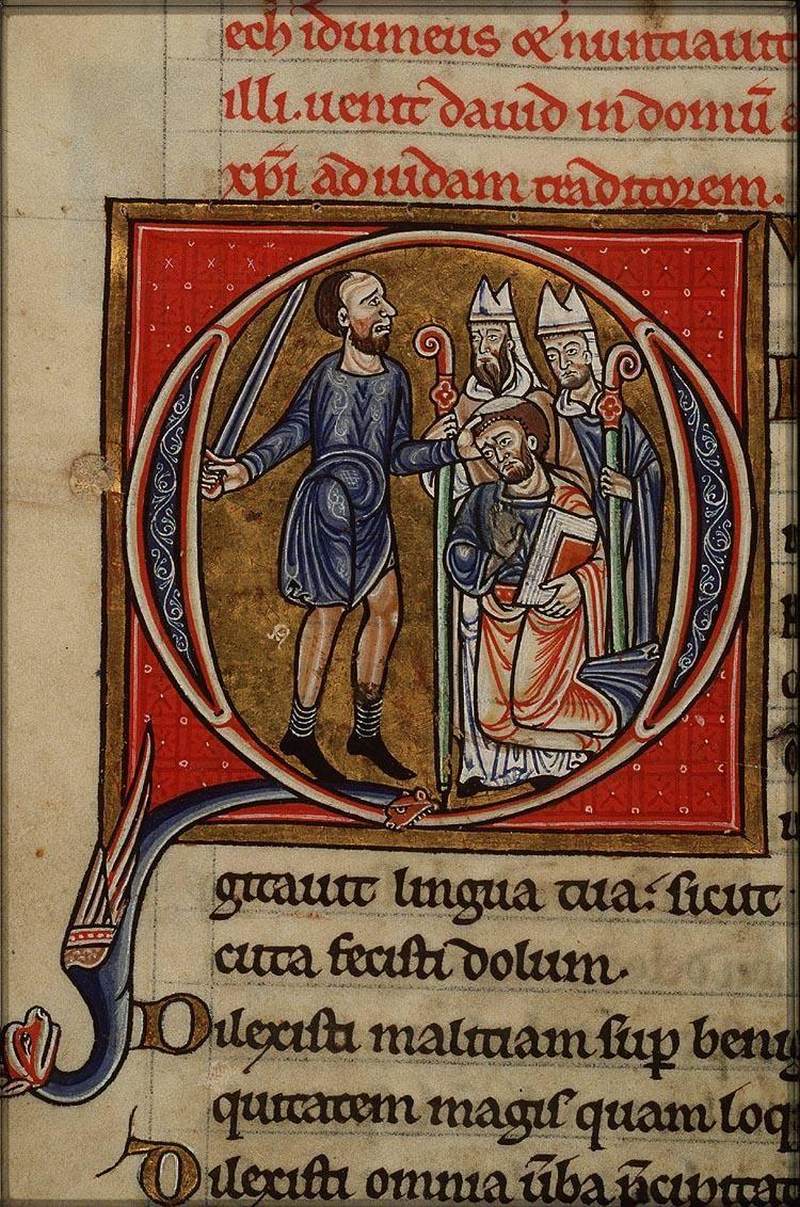 ech idumeus & nuntiauit
illi. uenit dauid in domū a
xp̄i ad iudam traditorem.
Q
gitauit lingua tua: sicut
cuta fecisti dolum.
Dilexisti malitiam sup̱ benig
quitatem magis quam loq
Dilexisti omnia ūba p̄cipitat